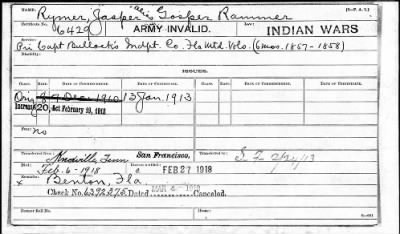 Rymer, Jasper alias Gosper Rammer
6429 ARMY INVALID. INDIAN WARS
Pri Capt Bullock's Indpt. Co. Fla Mtd. Vols. (6 mos. 1857-1858)
Disability:
ISSUES.
CLASS. RATE. DATE OF COMMENCEMENT. DATE OF CERTIFICATE. CLASS. RATE. DATE OF COMMENCEMENT. DATE OF CERTIFICATE.
Orig 8 13 Jan. 1913
Increase 20, Act February 19, 1913
Fee
No
Transferred from Knoxville, Tenn San Francisco,
Died Feb. 6-1918 FEB 27 1918
x Benton, Fla.
Check No. 6292275 Dated MAR 4-1918 Canceled.
Former Roll No. Home: